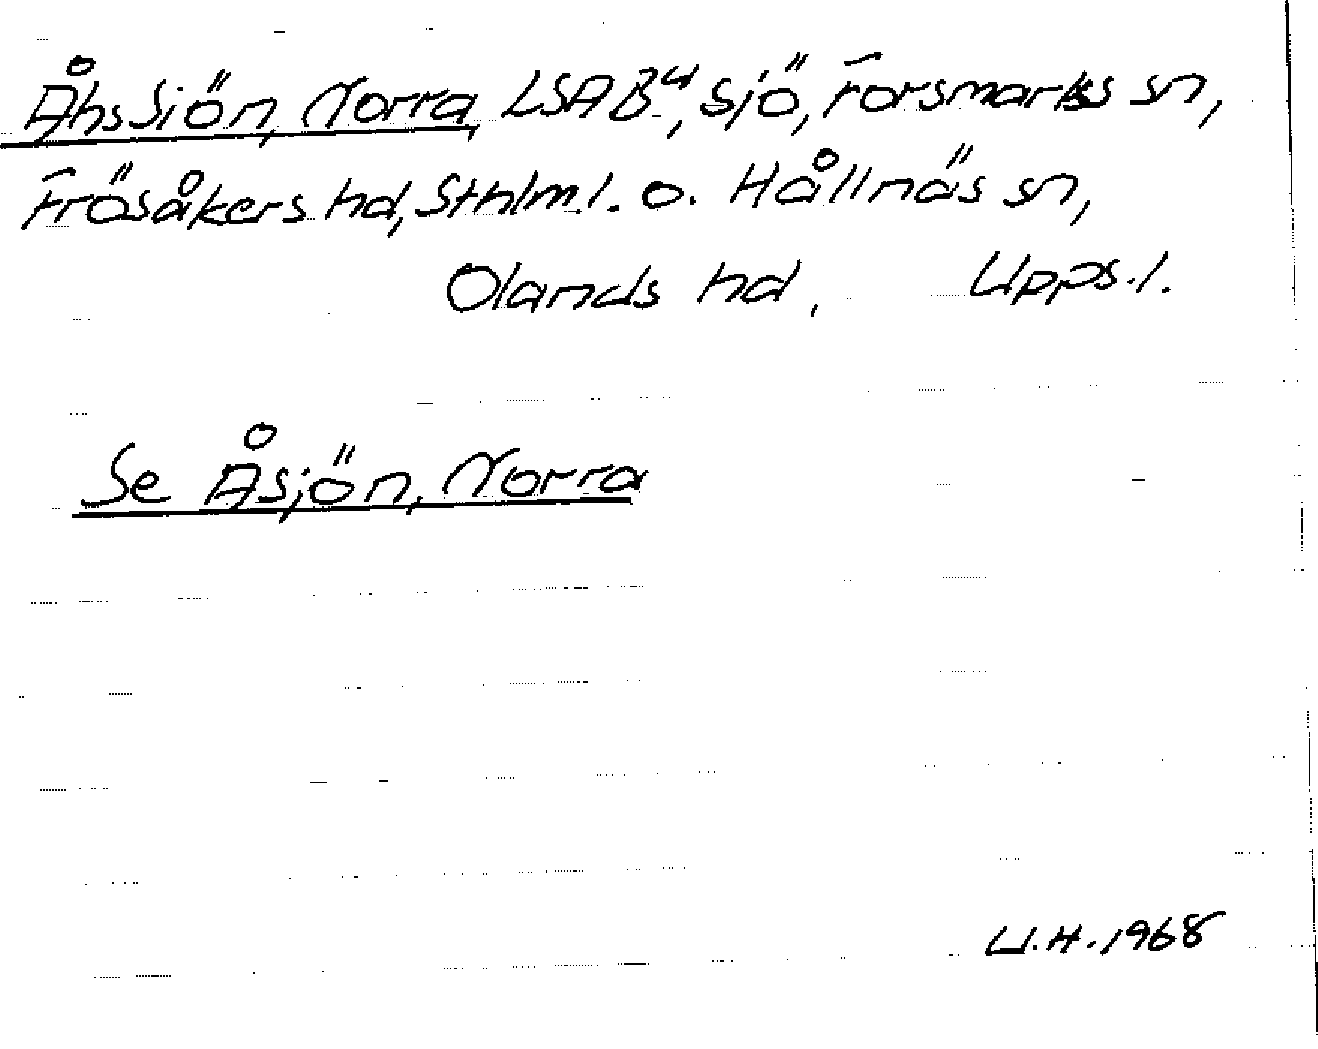 Åhs Siön, Norra, LSA B⁴, sjö, Forsmarks sn,
Frösåkers hd, Sthlm.l. o. Hållnäs sn,
Olands hd, Upps.l.
Se Åsjön, Norra
U.H. 1968